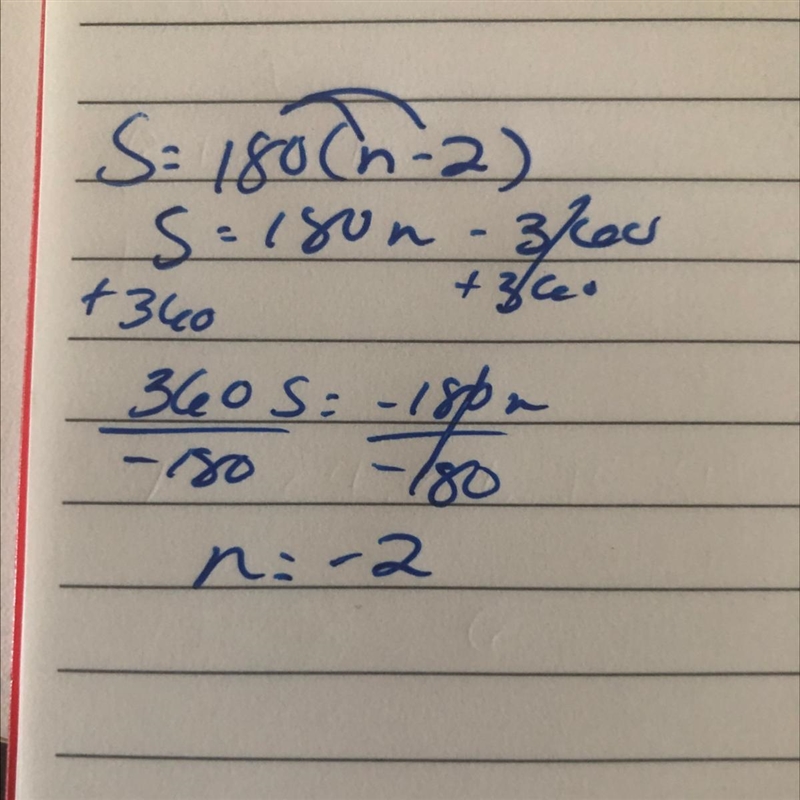 S = 180(n - 2)
S = 180n - 360
+ 360 + 360
360 S = -180n
-180 -180
n = -2